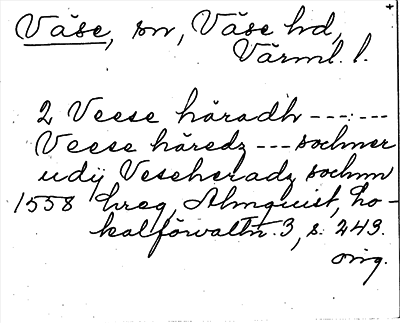 Väse, sn, Väse hd,
Värml. l.
2 Veese häradh ---:---
Veese häredz --- sochner
udij Veseheradz sochnn
1558 breg, Almquist, Lo-
kalförvaltn. 3, s. 243.
orig.